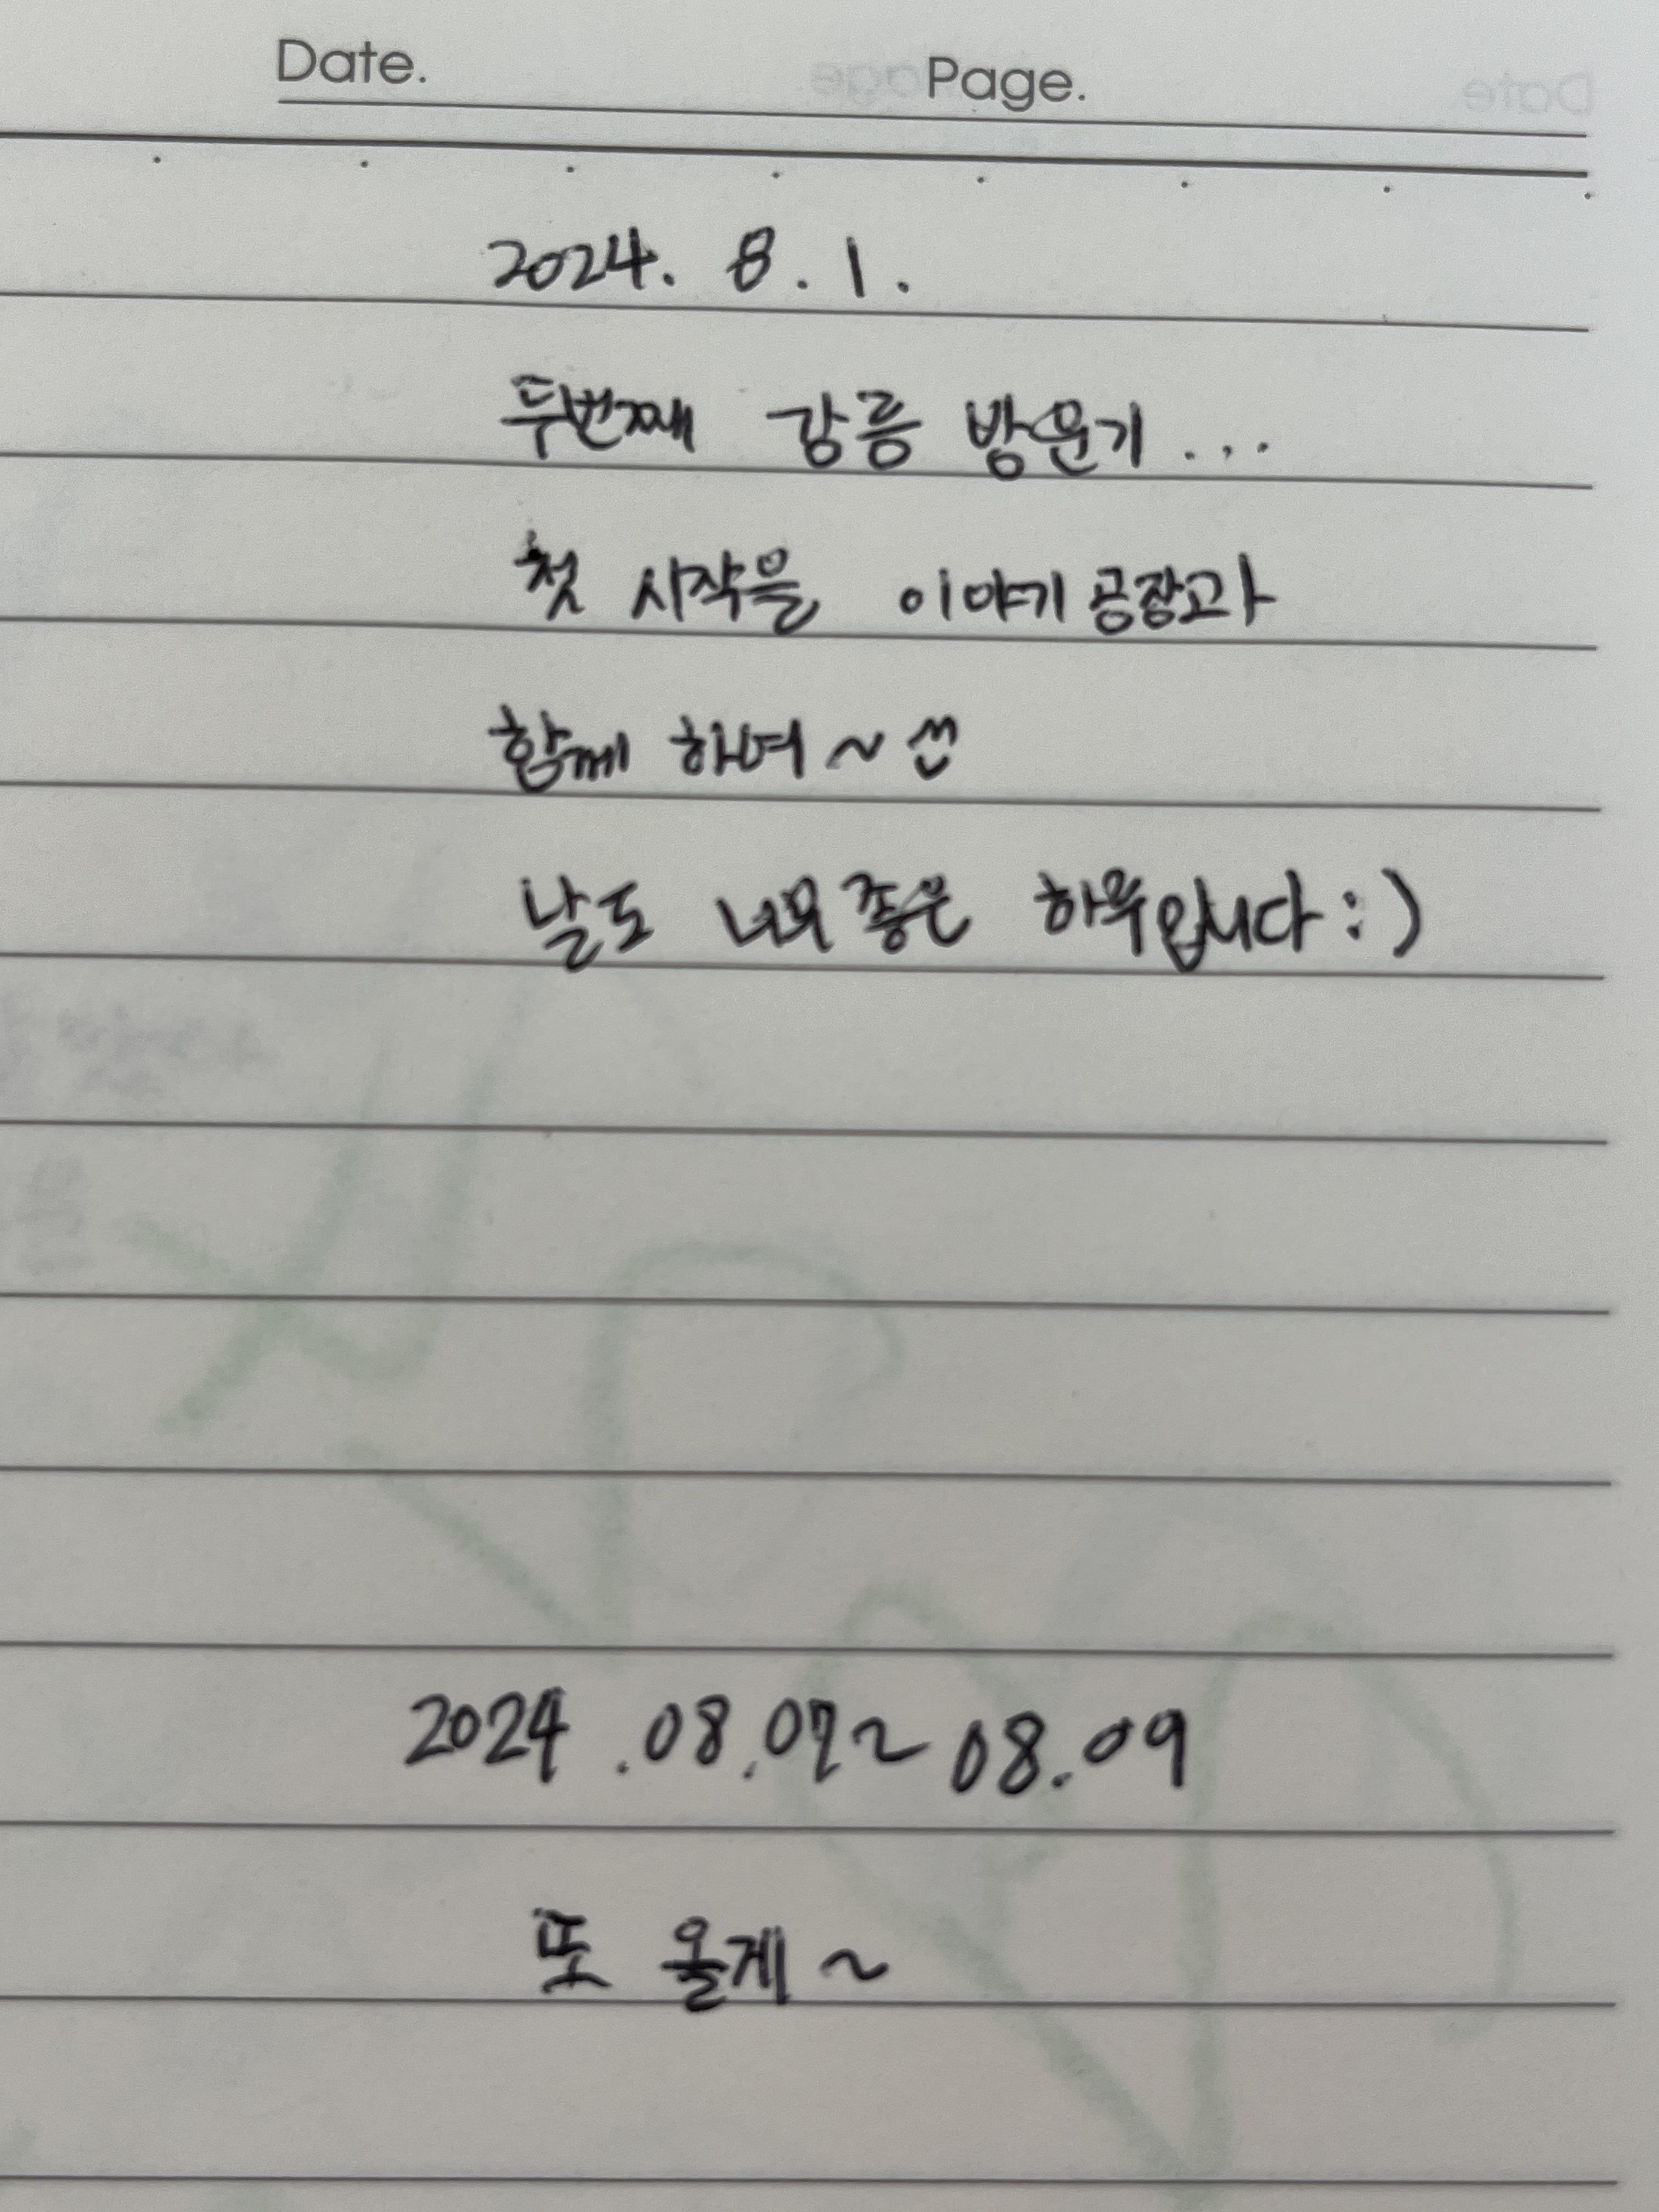 Date. Page.
2024. 8. 1.
두번째 강릉 방문기...
첫 시작을 이야기 공장과
함께 하여~
날도 너무 좋은 하루입니다 :)
2024 .08.07~08.09
또 올게~